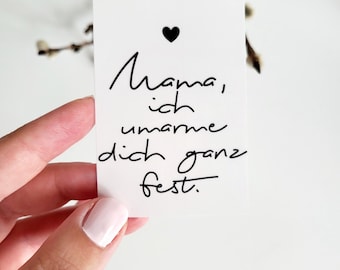 Mama,
ich
umarme
dich ganz
fest.